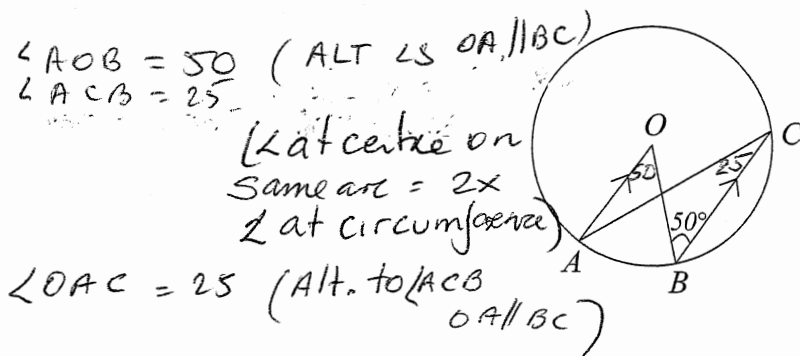 ∠AOB = 50 (ALT ∠S OA//BC)
∠ACB = 25
(∠ at centre on
same arc = 2x
∠ at circumference)
∠OAC = 25 (Alt. to ∠ACB
OA//BC)
O
C
50
25
50°
A
B